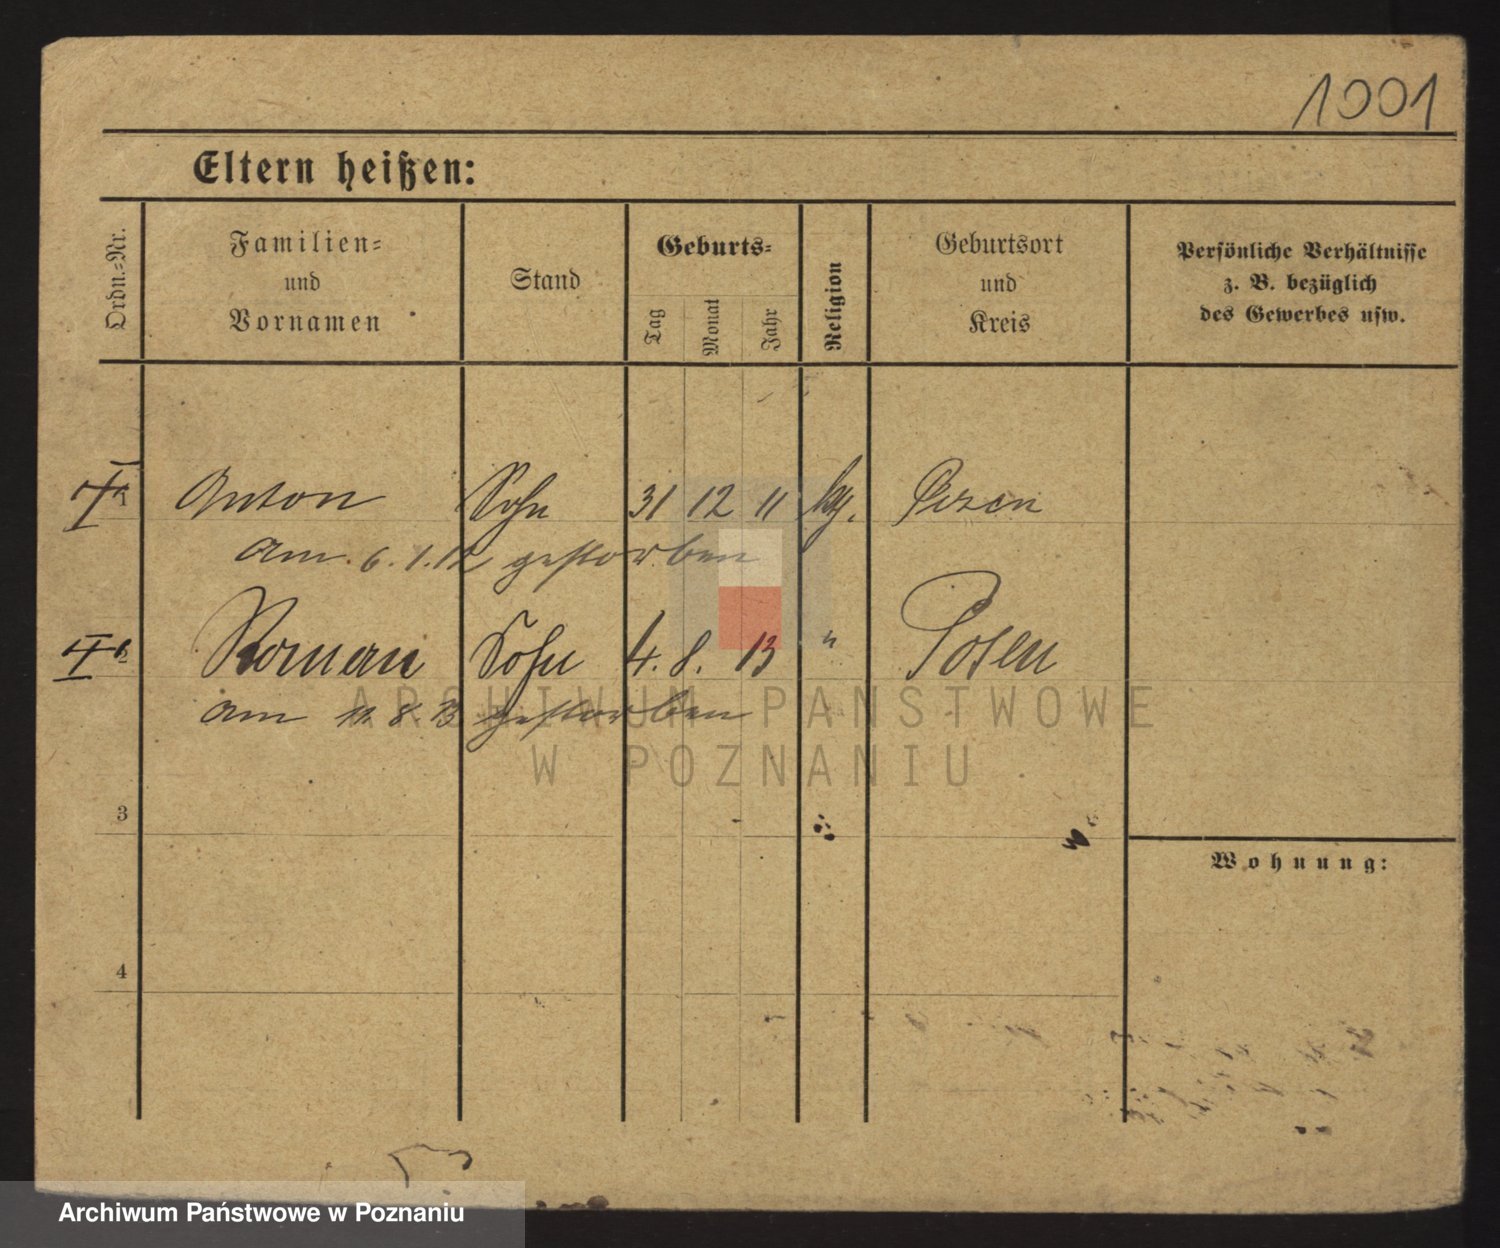 1001
Eltern heißen:
Ordn.-Nr.
Familien-
und
Vornamen
Stand
Geburts-
Tag
Monat
Jahr
Religion
Geburtsort
und
Kreis
Persönliche Verhältnisse
z. B. bezüglich
des Gewerbes usw.
Anton Sohn 31 12 11 Posen
am 6. 1. 12 gestorben
Roman Sohn 4. 8. 13 " Posen
am 11. 8. 13 gestorben
ARCHIWUM PAŃSTWOWE
W POZNANIU
3
Wohnung:
4
Archiwum Państwowe w Poznaniu